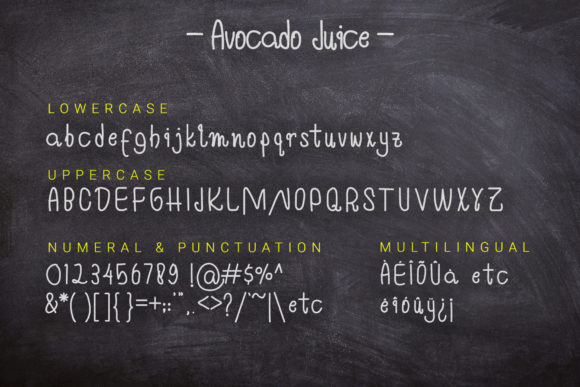 – Avocado Juice –
LOWERCASE
abcdefghijklmnopqrstuvwxyz
UPPERCASE
ABCDEFGHIJKLMNOPQRSTUVWXYZ
NUMERAL & PUNCTUATION
0123456789 !@#$%^
&*()[]{}=+;:'",.<>?/`~|\etc
MULTILINGUAL
ÀÉÎÕÛa etc
éîóûÿ¿¡